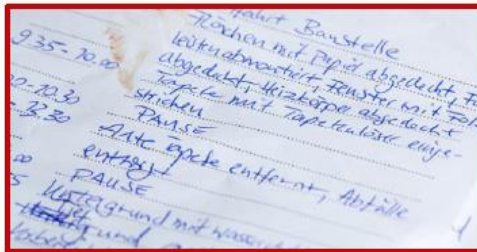 fahrt Baustelle
Flächen mit Papier abgedeckt, Fu
9 35-10.00 leisten abmontiert, Fenster mit Fol
abgedeckt, Heizkörper abgedeckt
00-10.30 Tapete mit Tapetenlöser einge-
strichen
-12.30 PAUSE
Alte Tapete entfernt, Abfälle
entsorgt
.00 PAUSE
5 Untergrund mit